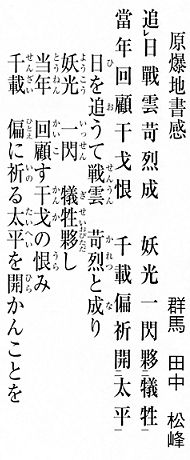 原爆地書感　群馬　田中　松峰
追㆑日戰雲苛烈成　妖光一閃夥㆓犠牲㆒
當年回顧干戈恨　千載偏祈開㆓太平㆒
日を追うて戦雲　苛烈と成り
妖光　一閃　犠牲夥し
当年　回顧す干戈の恨み
千載　偏に祈る太平を開かんことを